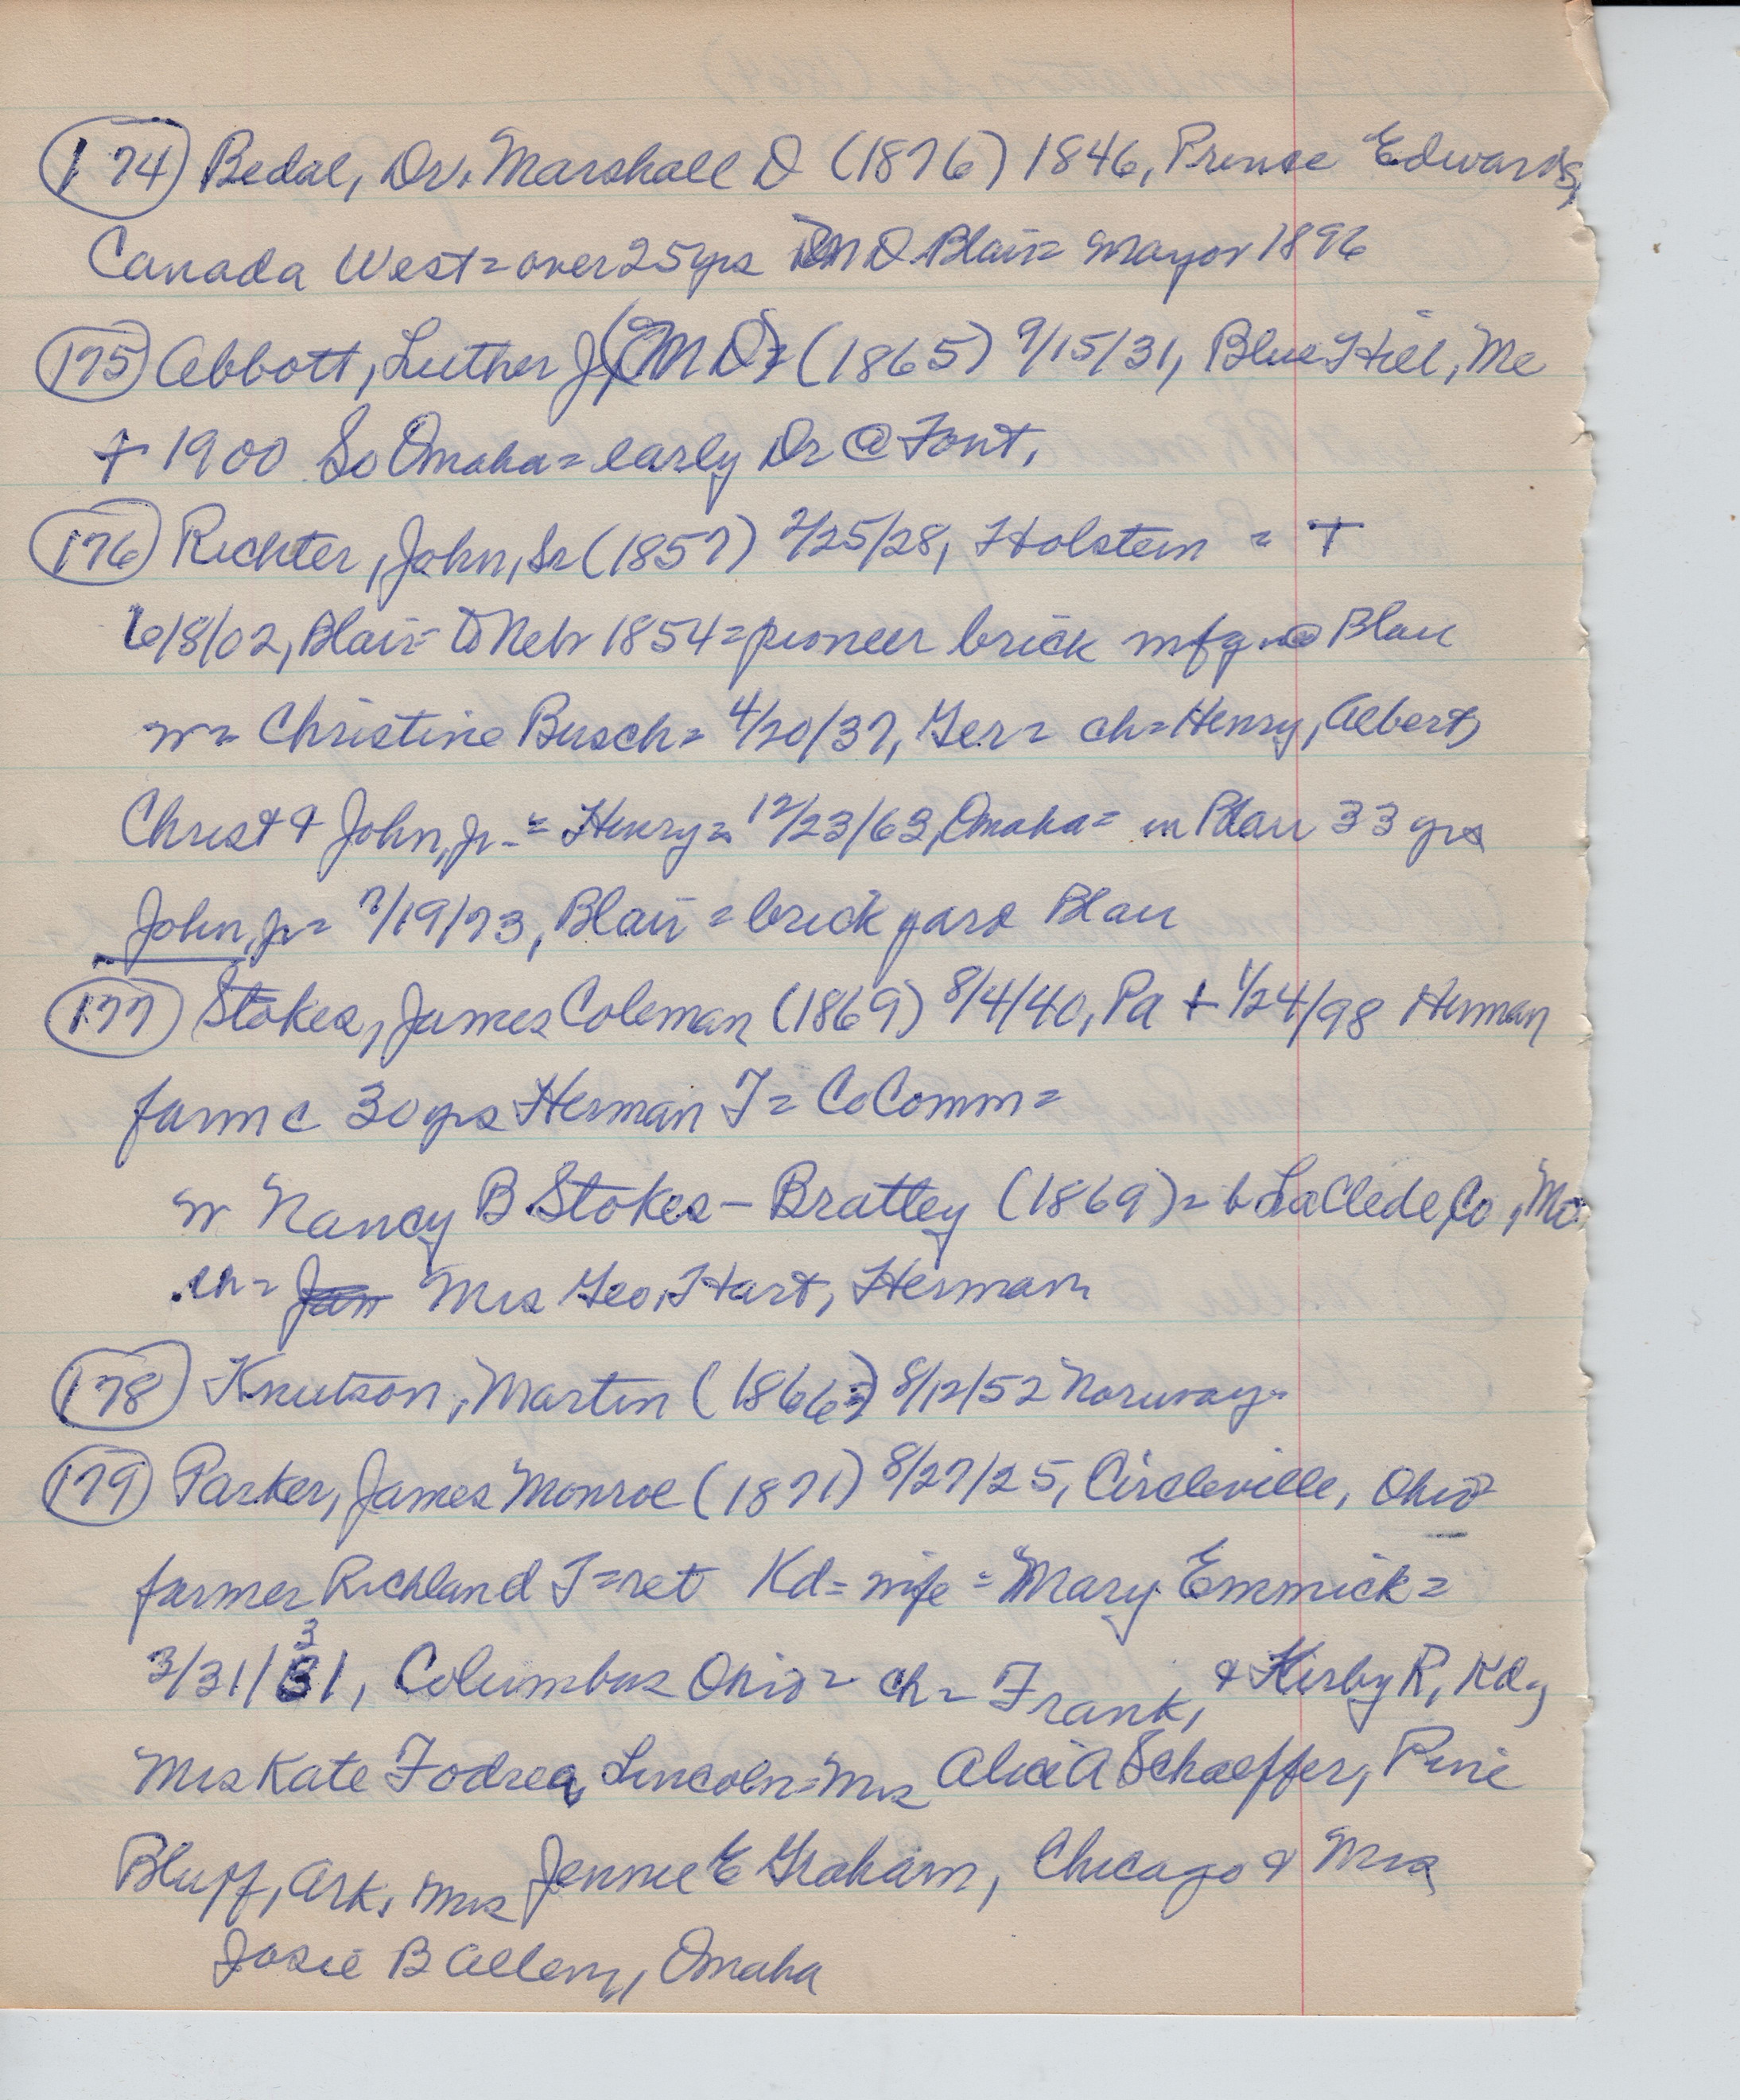 174 Bedal, Dr. Marshall D (1876) 1846, Prince Edwards,
Canada West = over 25 yrs M D Blair = Mayor 1896
175 Abbott, Luther J, (M D) = (1865) 9/15/31, Blue Hill, Me
+ 1900 So Omaha = early Dr @ Font.
176 Richter, John, Sr (1857) 2/25/28, Holstein = +
6/8/02, Blair = to Neb 1854 = pioneer brick mfg @ Blair
w = Christine Busch = 4/20/37, Ger = ch = Henry, Albert,
Christ & John, Jr. = Henry = 12/23/63, Omaha = in Blair 33 yrs
John, Jr = 7/19/73, Blair = brick yard Blair
177 Stokes, James Coleman (1869) 8/4/40, Pa + 1/24/98 Herman
farm c 30 yrs Herman T = Co Comm =
w Nancy B Stokes - Brattey (1869) = b LaClede Co, Mo.
ch = Jam Mrs Geo. Hart, Herman
178 Knutson, Martin (1866) 8/12/52 Norway.
179 Parker, James Monroe (1871) 8/27/25, Circleville, Ohio
farmer Richland T = ret Kd = wife = Mary Emmick =
3/31/31, Columbus Ohio = ch = Frank, & Kirby R, Kd,
3
Mrs Kate Fodrea, Lincoln = Mrs Alice A Schaeffer, Pine
Bluff, Ark, Mrs Jennie E Graham, Chicago & Mrs
Josie B Allen, Omaha